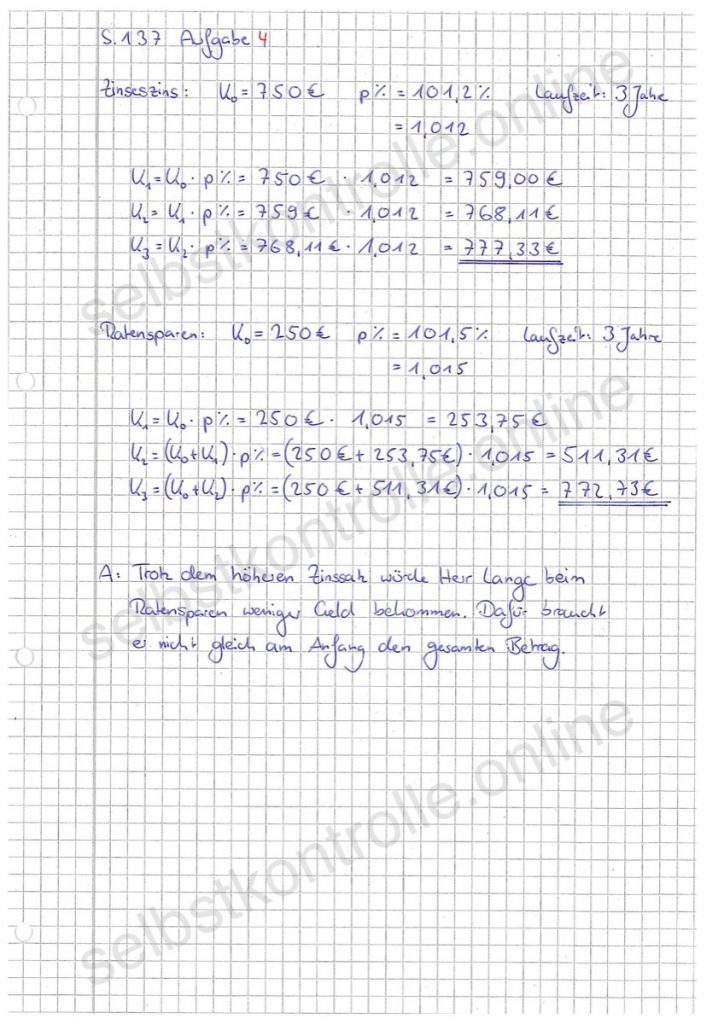 S.137 Aufgabe 4
Zinseszins: K₀ = 750€ p% = 101,2% Laufzeit: 3 Jahre
= 1,012
K₁ = K₀ · p% = 750€ · 1,012 = 759,00€
K₂ = K₁ · p% = 759€ · 1,012 = 768,11€
K₃ = K₂ · p% = 768,11€ · 1,012 = 777,33€
Ratensparen: K₀ = 250€ p% = 101,5% Laufzeit: 3 Jahre
= 1,015
K₁ = K₀ · p% = 250€ · 1,015 = 253,75€
K₂ = (K₀+K₁) · p% = (250€ + 253,75€) · 1,015 = 511,31€
K₃ = (K₀+K₂) · p% = (250€ + 511,31€) · 1,015 = 772,73€
A: Trotz dem höheren Zinssatz würde Herr Lange beim
Ratensparen weniger Geld bekommen. Dafür braucht
er nicht gleich am Anfang den gesamten Betrag.
selbstkontrolle.online
selbstkontrolle.online
selbstkontrolle.online